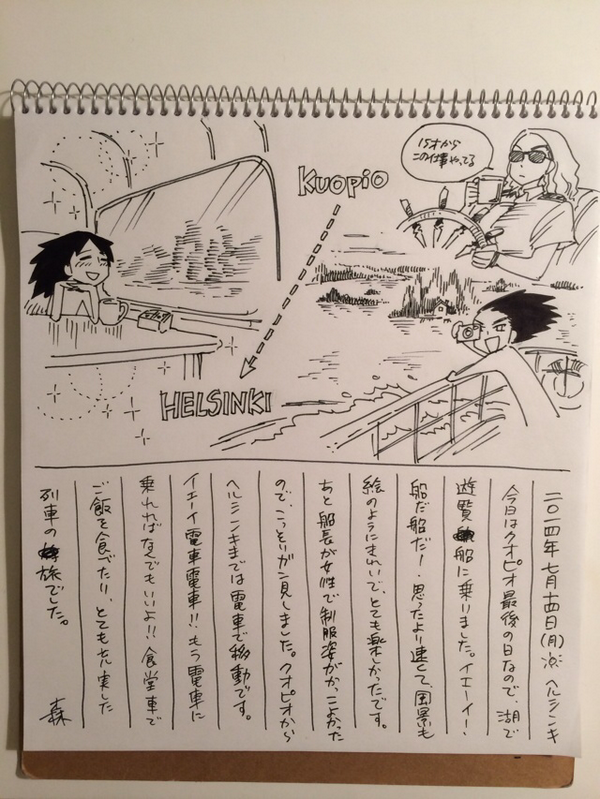 15才から
この仕事やってる
KUOPIO
HELSINKI
二〇一四年七月十四日(月) 於 ヘルシンキ
今日はクオピオ最後の日なので、湖で
遊覧船に乗りました。イエーイ!
船だ船だ!思ったより速くて、風景も
絵のようにきれいで、とても楽しかったです。
あと船長が女性で制服姿がかっこよかった
ので、こっそりガン見しました。クオピオから
ヘルシンキまでは電車で移動です。
イエーイ電車電車!!もう電車に
乗れればなんでもいいよ!!食堂車で
ご飯を食べたり、とても充実した
列車の旅でした。
森